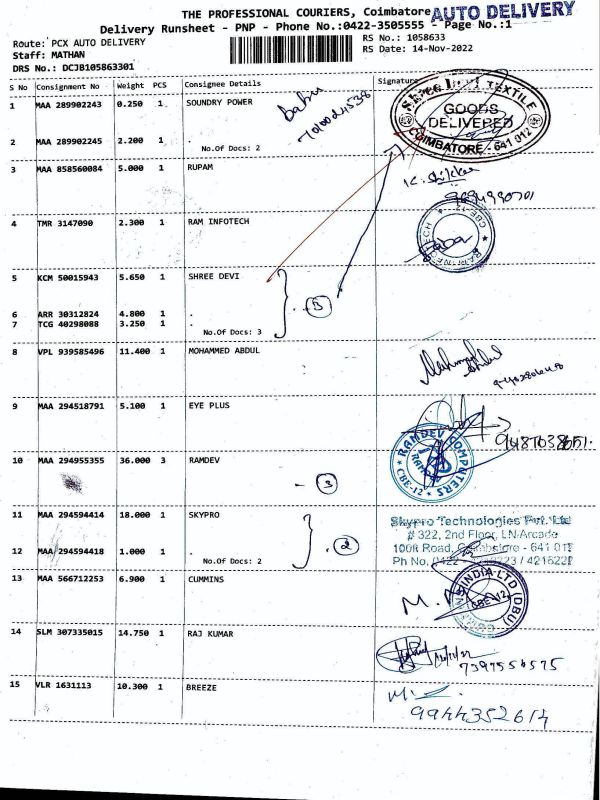 THE PROFESSIONAL COURIERS, Coimbatore AUTO DELIVERY
Delivery Runsheet - PNP - Phone No.:0422-3505555 - Page No.:1
Route: PCX AUTO DELIVERY RS No.: 1058633
Staff: MATHAN RS Date: 14-Nov-2022
DRS No.: DCJB105863301
S No Consignment No Weight PCS Consignee Details Signature
1 MAA 289902243 0.250 1 SOUNDRY POWER
Babu
7010024538
Shree Devi TEXTILE
GOODS
DELIVERED
COIMBATORE - 641 012
2 MAA 289902245 2.200 1 .
No.Of Docs: 2
3 MAA 858560084 5.000 1 RUPAM
4 TMR 3147090 2.300 1 RAM INFOTECH
RAM INFOTECH
CBE-12
5 KCM 50015943 5.650 1 SHREE DEVI
6 ARR 30312824 4.800 1 .
7 TCG 40298088 3.250 1 .
No.Of Docs: 3
8 VPL 939585496 11.400 1 MOHAMMED ABDUL
9 MAA 294518791 5.100 1 EYE PLUS
10 MAA 294955355 36.000 3 RAMDEV
- 3
RAMDEV COMPUTERS
CBE-12
11 MAA 294594414 18.000 1 SKYPRO
2
Skypro Technologies Pvt. Ltd
# 322, 2nd Floor, LN Arcade
100ft Road, Coimbatore - 641 012
Ph No. 0422 / 4216222
12 MAA 294594418 1.000 1 .
No.Of Docs: 2
13 MAA 566712253 6.900 1 CUMMINS
INDIA LTD (DBU)
CBE-12
14 SLM 307335015 14.750 1 RAJ KUMAR
7397556575
15 VLR 1631113 10.300 1 BREEZE
9944352614